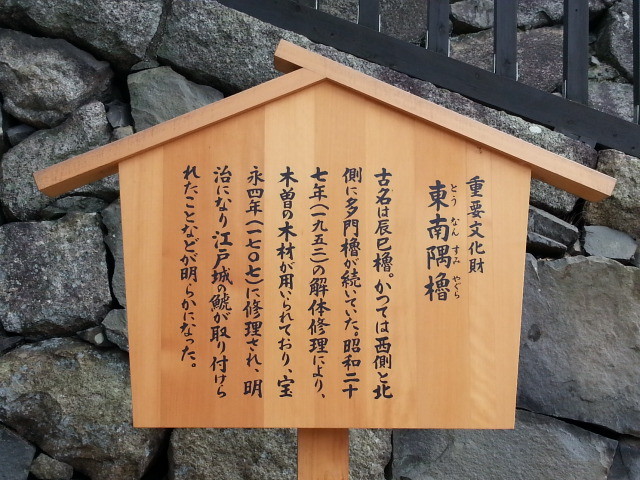 重要文化財
東南隅櫓
とうなんすみやぐら
古名は辰巳櫓。かつては西側と北
側に多門櫓が続いていた。昭和二十
七年(一九五三)の解体修理により、
木曽の木材が用いられており、宝
永四年(一七〇七)に修理され、明
治になり江戸城の鯱が取り付けら
れたことなどが明らかになった。